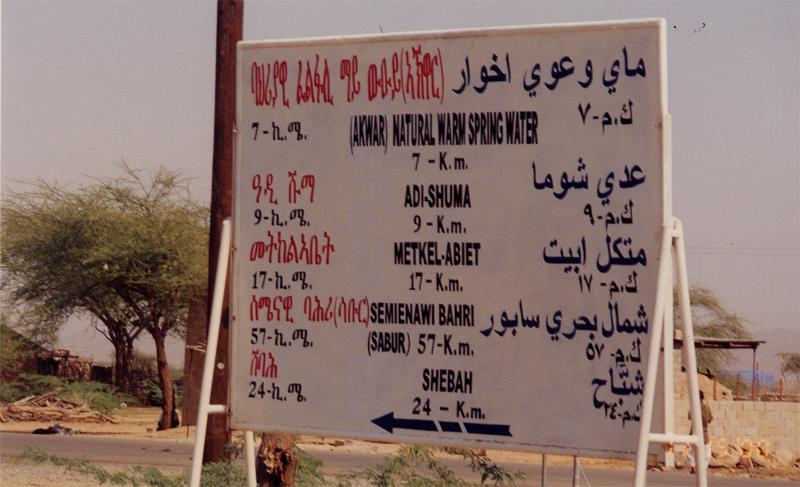 ባህሪያዊ ፈልፋሊ ማይ ውዑይ(ኣኽዋር) ماي وعوي اخوار
7-ኪ.ሜ. (AKWAR) NATURAL WARM SPRING WATER ك.م-٧
7 - K.m.
ዓዲ ሹማ ADI-SHUMA عدي شوما
9-ኪ.ሜ. 9 - K.m. ك.م-٩
መትከልኣቤት METKEL-ABIET متكل ابيت
17-ኪ.ሜ. 17 - K.m. ك.م-١٧
ሰሜናዊ ባሕሪ(ሳቡር) SEMIENAWI BAHRI شمال بحري سابور
57-ኪ.ሜ. (SABUR) 57-K.m. ك.م-٥٧
ሸባሕ SHEBAH شبّاح
24-ኪ.ሜ. 24 - K.m. ك.م-٢٤